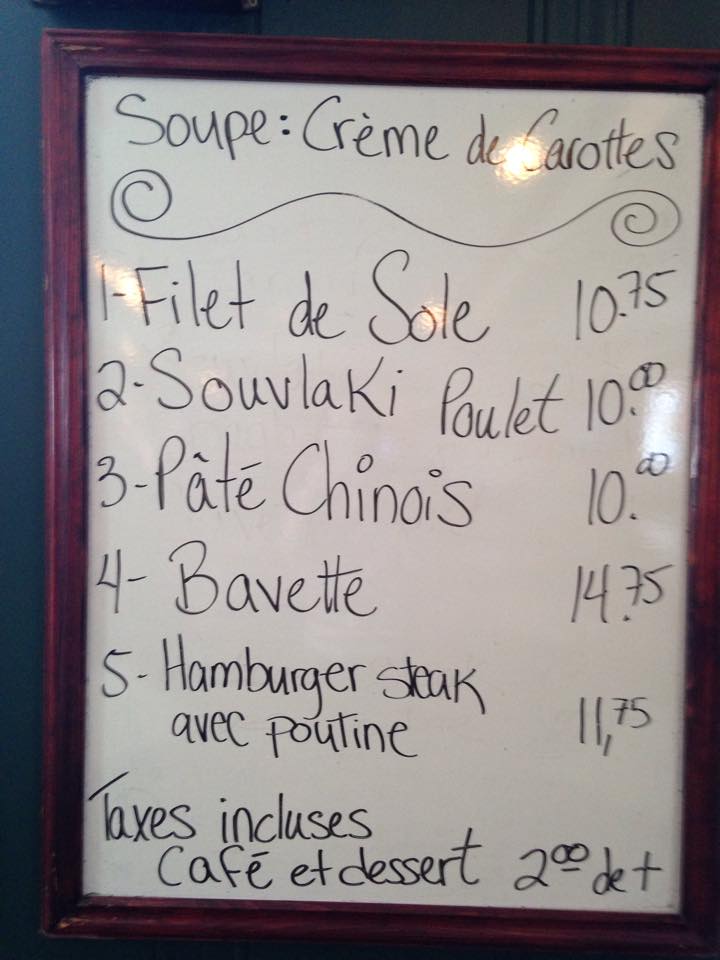 Soupe: Crème de Carottes
1-Filet de Sole 10.75
2-Souvlaki Poulet 10.00
3-Pâté Chinois 10.00
4- Bavette 14.75
5- Hamburger steak
avec poutine 11,75
Taxes incluses
Café et dessert 2.00 de +